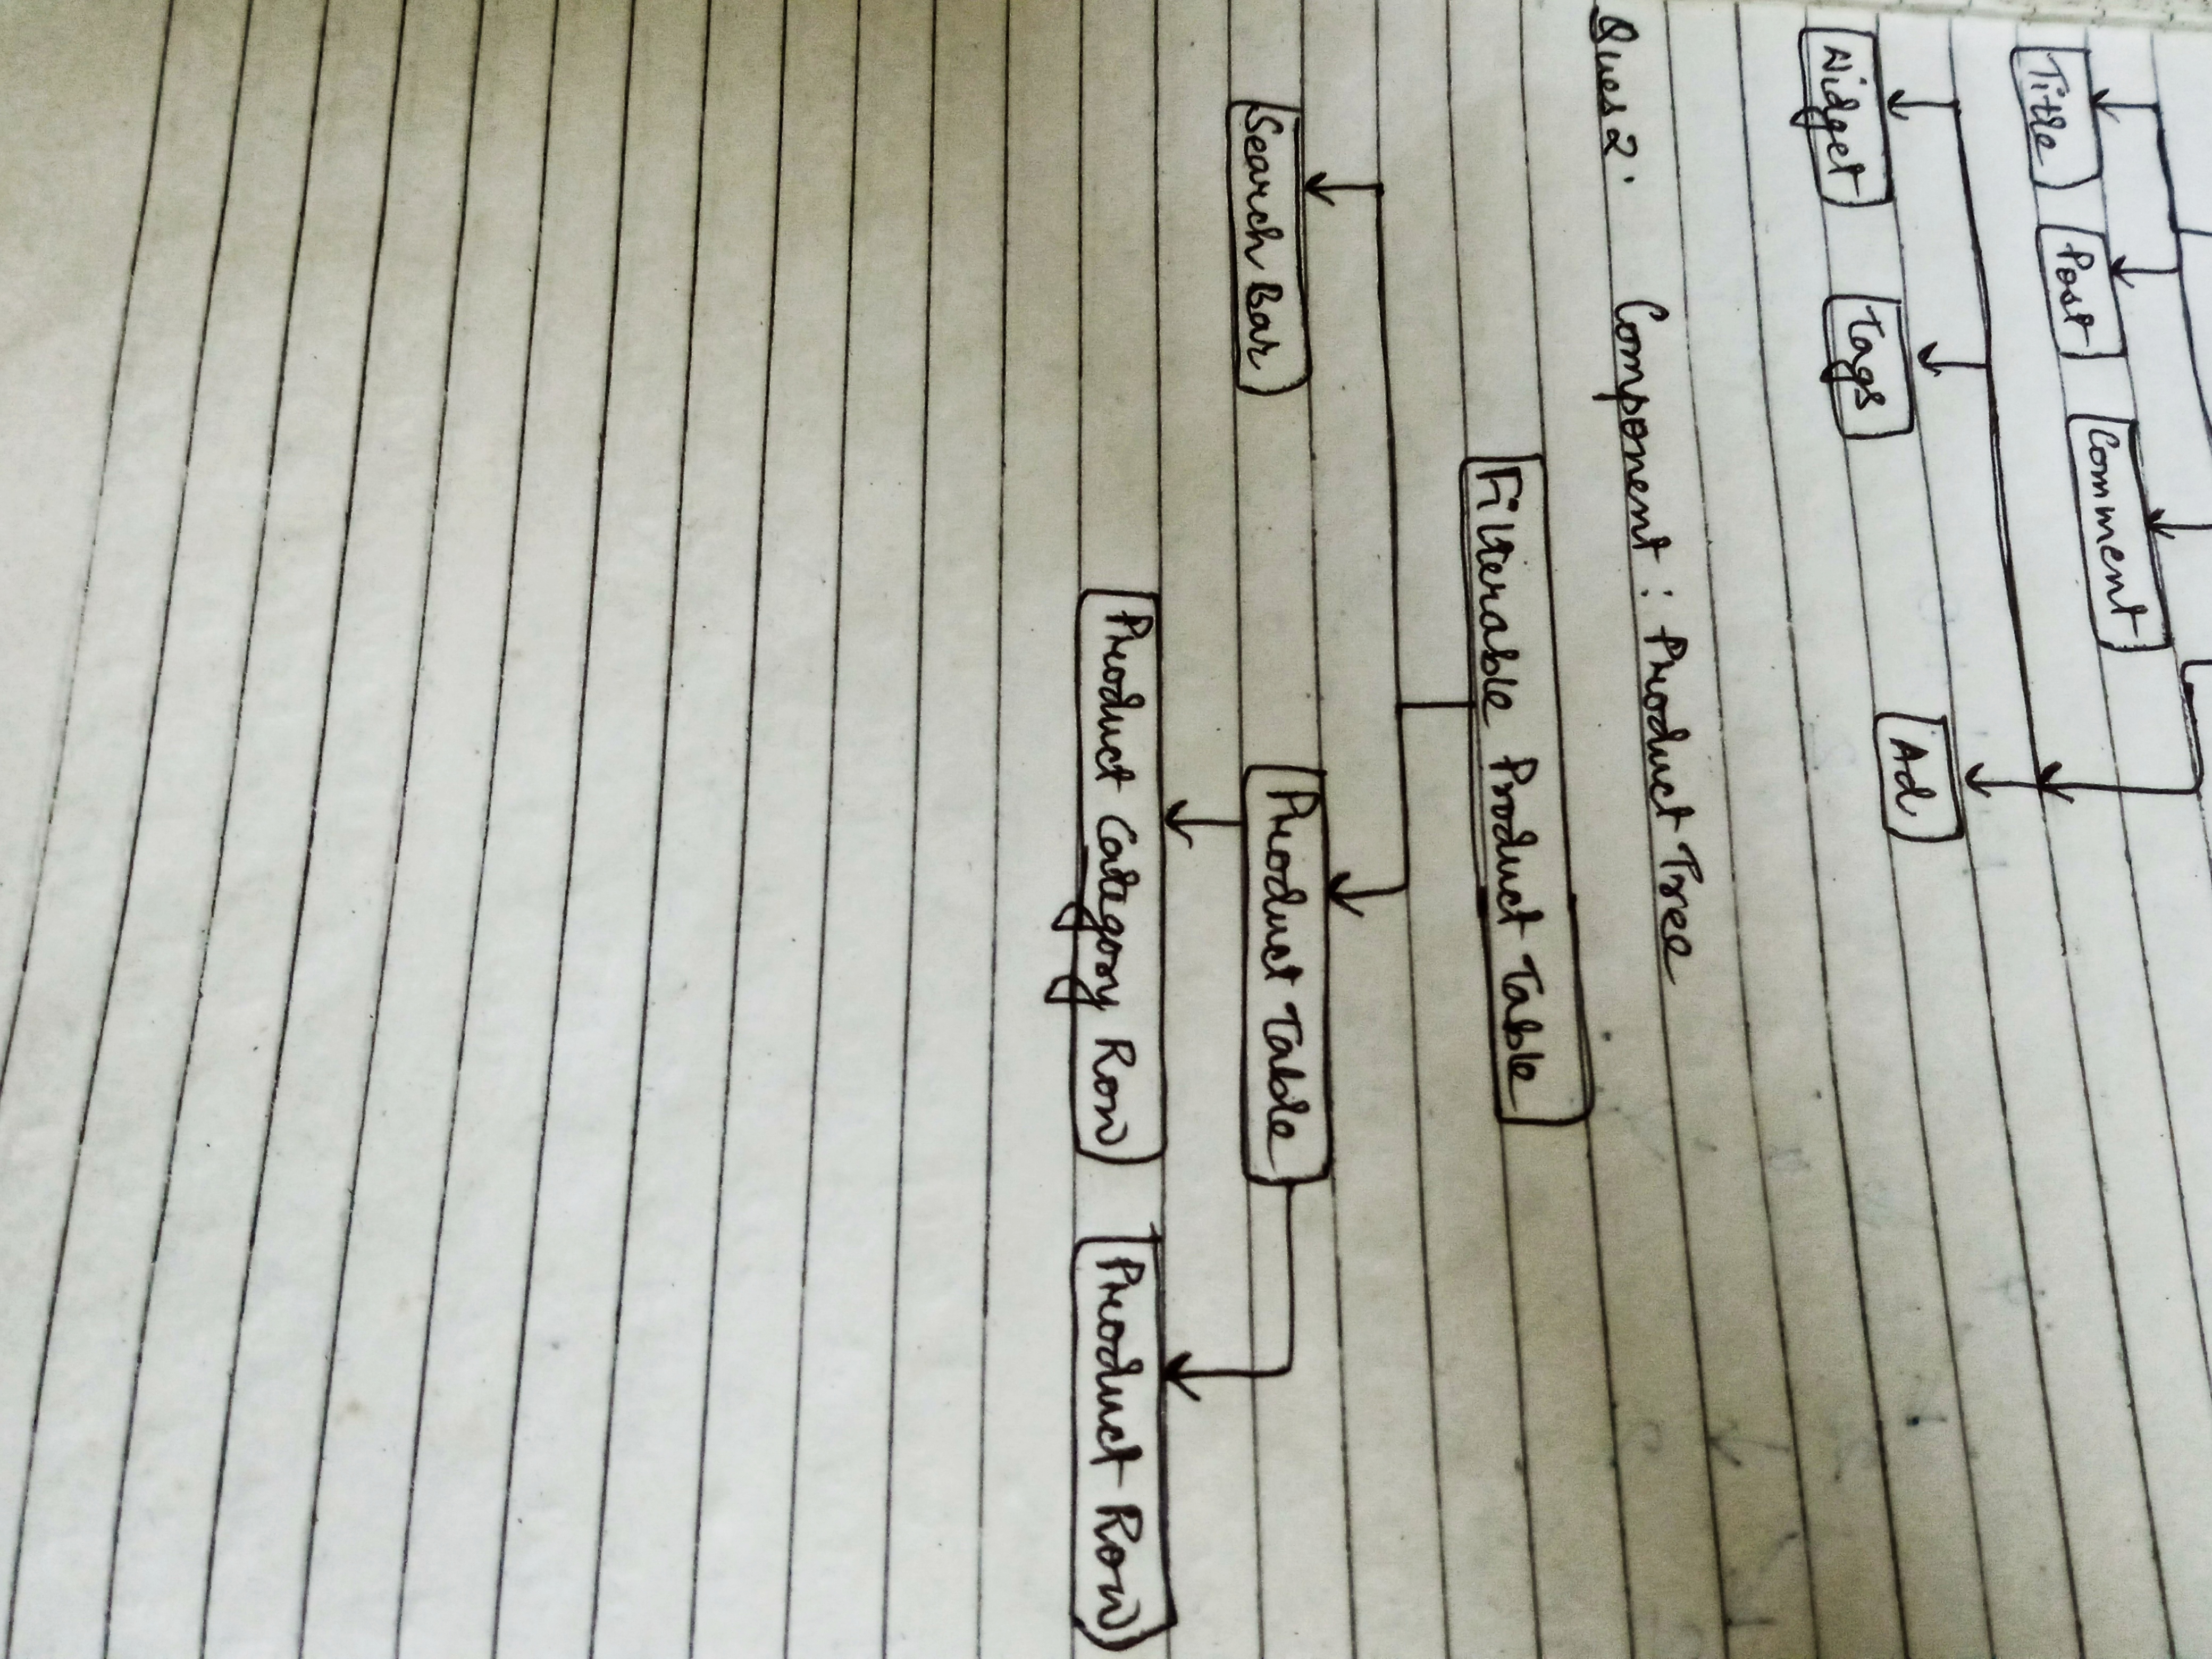 Title
Post
Comment
Widget
Tags
Ad
Ques 2. Component : Product Tree
Filterable Product Table
Search Bar
Product Table
Product Category Row
Product Row